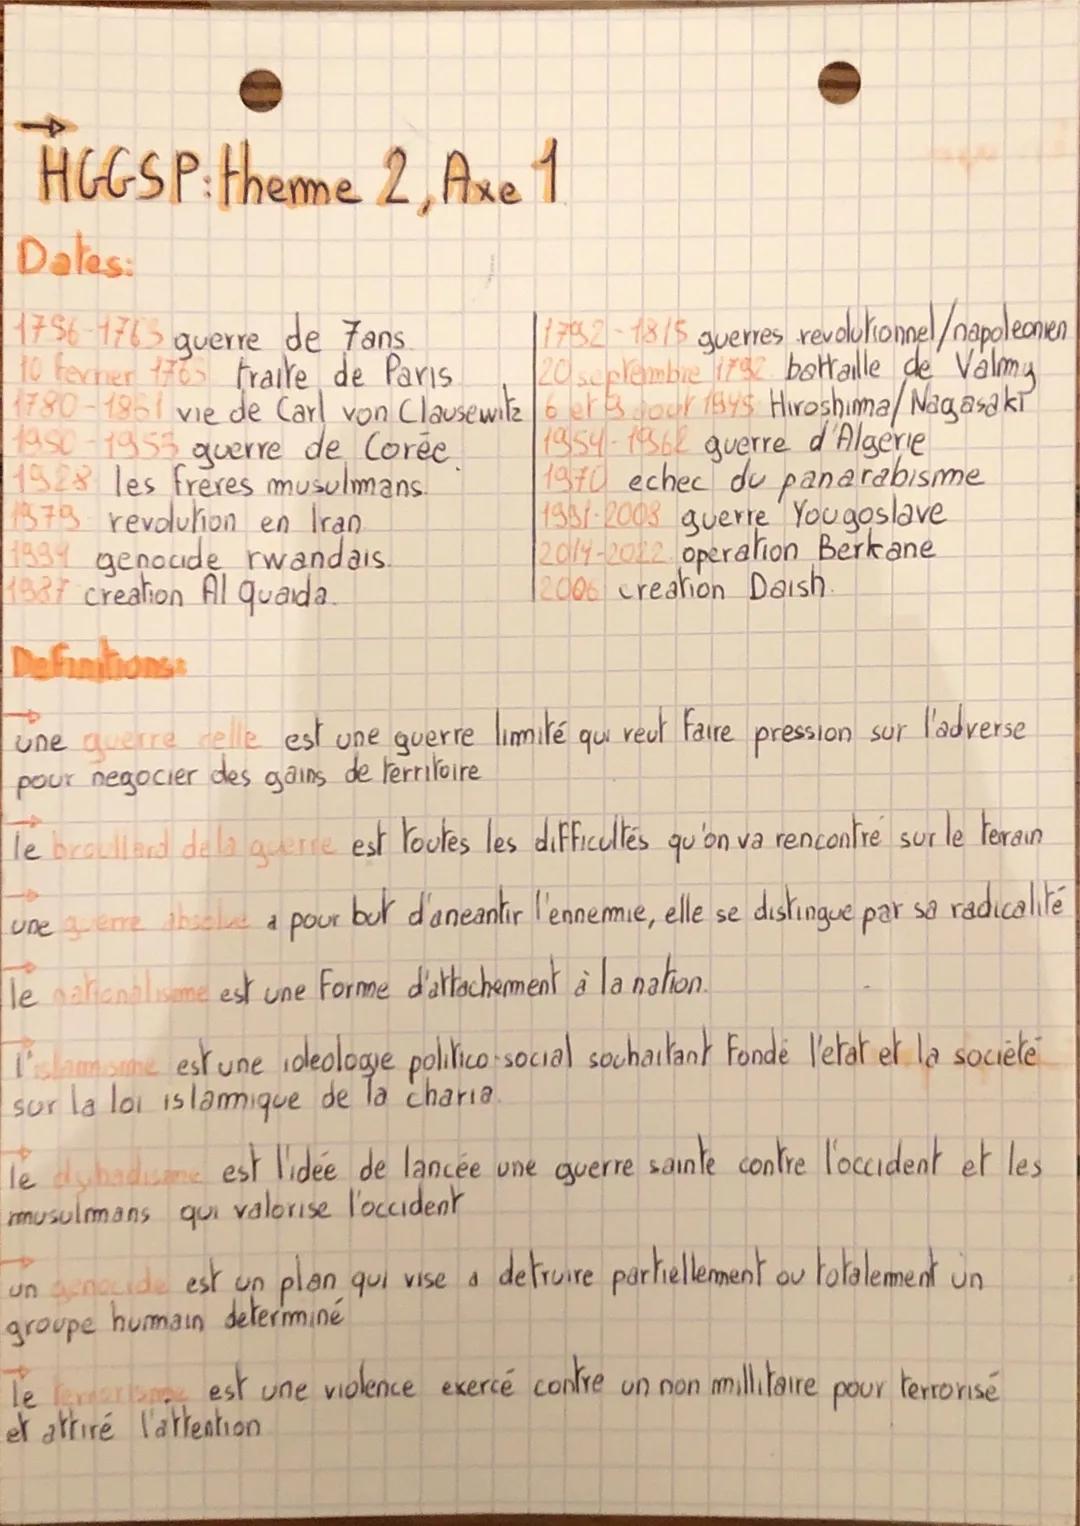 HGGSP: theme 2, Axe 1
Dates:
1756-1763 guerre de 7ans
10 fevrier 1763 traite de Paris
1780-1831 vie de Carl von Clausewitz
1950-1953 guerre de Corée
1928 les frères musulmans
1979 revolution en Iran
1994 genocide rwandais.
1987 creation Al Quaida.
1792-1815 guerres revolutionnel/napoleonien
20 septembre 1792 battaille de Valmy
6 et 9 aout 1945 Hiroshima/Nagasaki
1954-1962 guerre d'Algerie
1970 echec du panarabisme
1991-2008 guerre Yougoslave
2014-2022 operation Berkane
2006 creation Daish.
Definitions:
une guerre réelle est une guerre limité qui veut faire pression sur l'adverse
pour negocier des gains de territoire
le brouillard de la guerre est toutes les difficultés qu'on va rencontré sur le terain
une guerre absolue a pour but d'aneantir l'ennemie, elle se distingue par sa radicalité
le nationalisme est une forme d'attachement à la nation.
l'islamisme est une ideologie politico-social souhaitant fondé l'etat et la société
sur la loi islamique de la charia.
le djihadisme est l'idée de lancée une guerre sainte contre l'occident et les
musulmans qui valorise l'occident
un genocide est un plan qui vise a detruire partiellement ou totalement un
groupe humain determiné
le terrorisme est une violence exercé contre un non millitaire pour terrorisé
et attiré l'attention